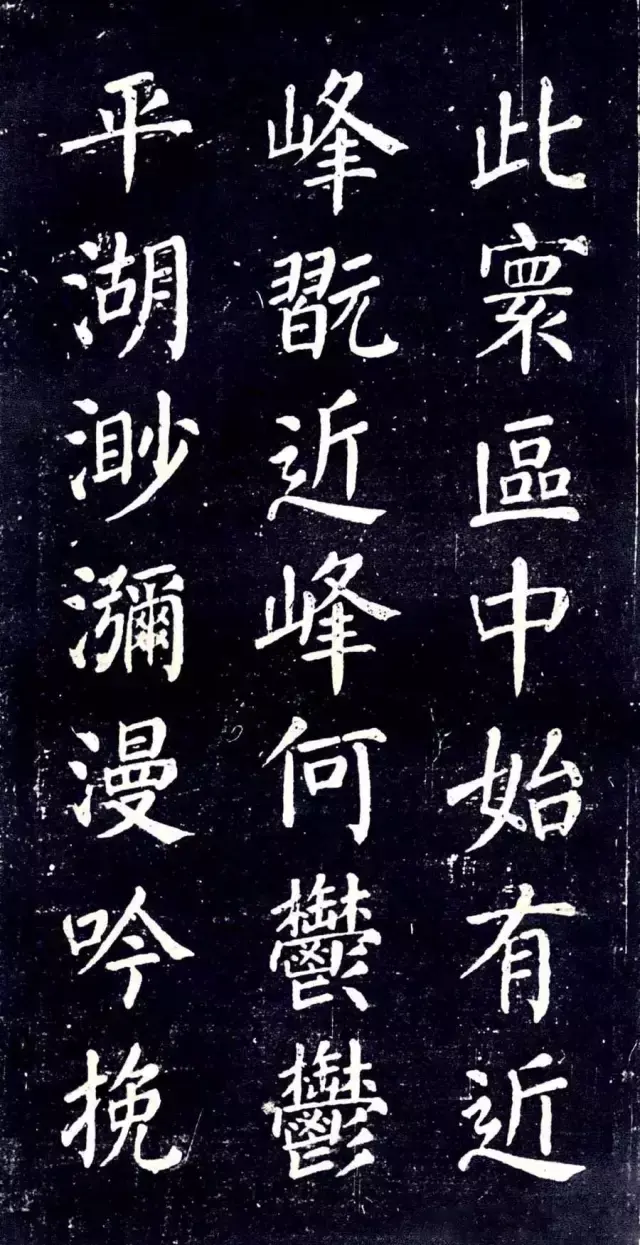 此寰區中始有近
峰翫近峰何鬱鬱
平湖渺瀰漫吟挽